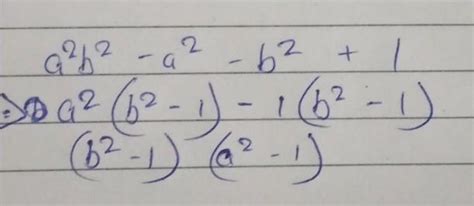 a²b² - a² - b² + 1
⇒ a² (b² - 1) - 1 (b² - 1)
(b² - 1) (a² - 1)